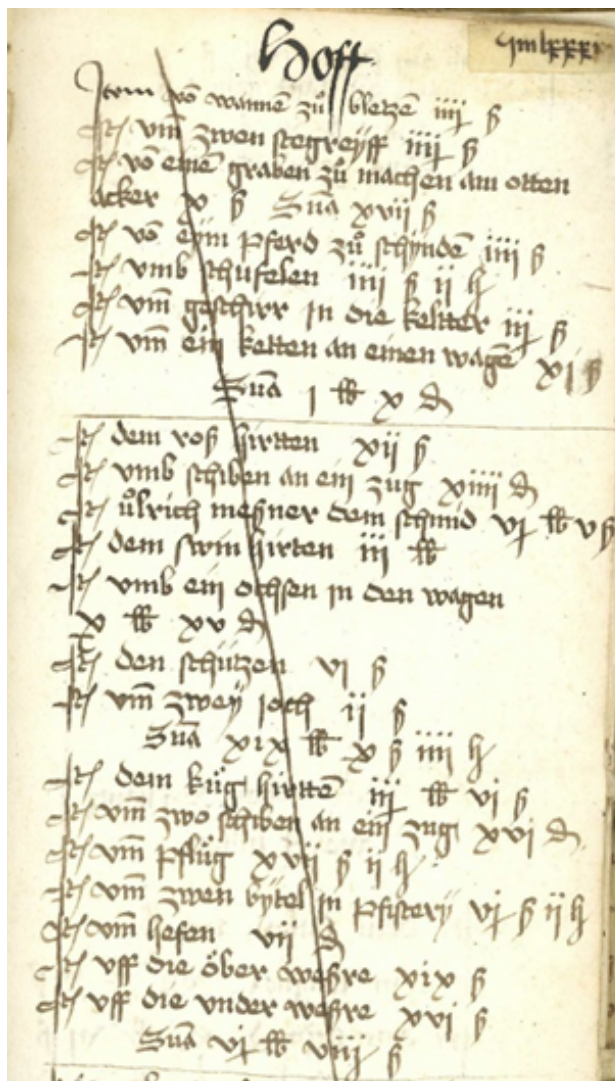 Hoff
Item vō wannē zuͦ bletzē iiij ß
It vm̄ zwen stegreyff iiij ß
It vō einē graben zuͦ machen am otten
acker x ß Sūa xvij ß
It vō eym pferd zuͦ schyndē iiij ß
It vmb schufelen iiij ß ii h
It vm̄ geschirr in die keltter iij ß
It vm̄ ein ketten an einen wagē xi ß
Sūa i lb x d
It dem roß hirtten xii ß
It vmb schiben an ein zug xiiii d
It uͦlrich meyner dem schmid vj lb v ß
It dem swin hirten iii lb
It vmb ein ochsen in den wagen
x lb xv d
It den schützen vi ß
It vm̄ zwey ioch ii ß
Sūa xix lb x ß iiii h
It dem küg hirttē iij lb vi ß
It vm̄ zwo schiben an ein zug xvi d
It vm̄ pflüg xvii ß ii h
It vm̄ zwen bytel in pfistery vj ß ii h
It vm̄ hefen vii d
It vff die öber weyre xix ß
It vff die vnder weyre xvi ß
Sūa vj lb viii ß